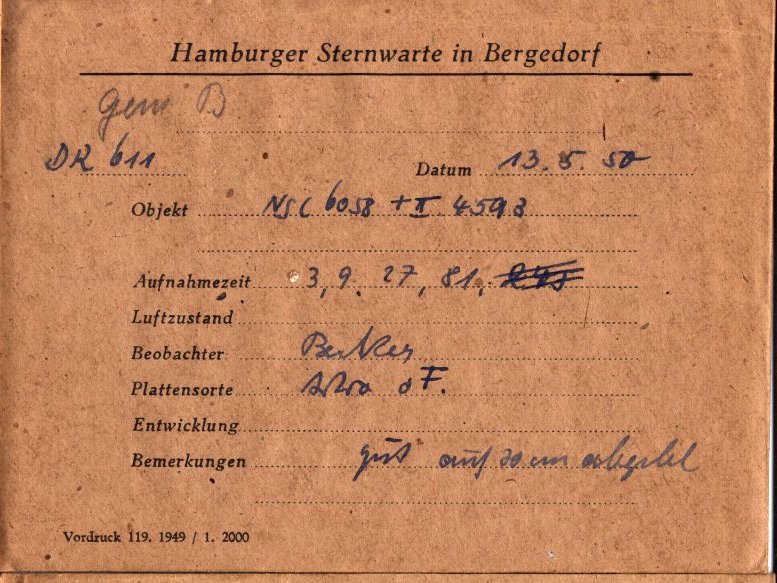 Hamburger Sternwarte in Bergedorf
Gem B
DR 611
Datum 13. 5. 50
Objekt NGC 6058 + II 4593
Aufnahmezeit 3, 9. 27, 81,
Luftzustand
Beobachter
Plattensorte Astro o F.
Entwicklung
Bemerkungen gut auf 30 cm
Vordruck 119. 1949 / 1. 2000